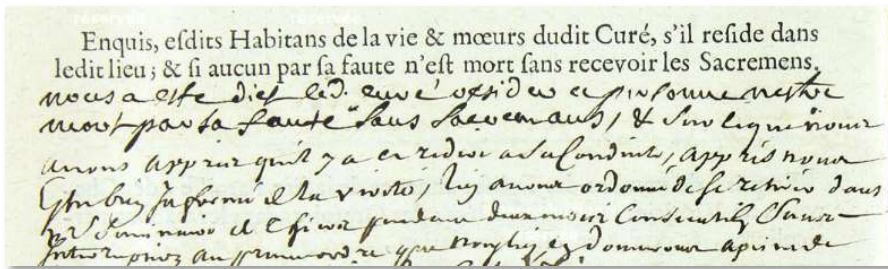 Enquis, esdits Habitans de la vie & mœurs dudit Curé, s'il reside dans
ledit lieu; & si aucun par sa faute n'est mort sans recevoir les Sacremens.
nous a esté dict led. curé resider et personne n'estre
mort par sa faute sans sacremans, & sur ce que nous
avons appris qu'il y a a redire a sa conduite, appris nous
informé de la verité, luy avons ordonné de se retirer dans
seminaire et consecutifs sans
interruption au premier ordre que luy en donnerons a peine de